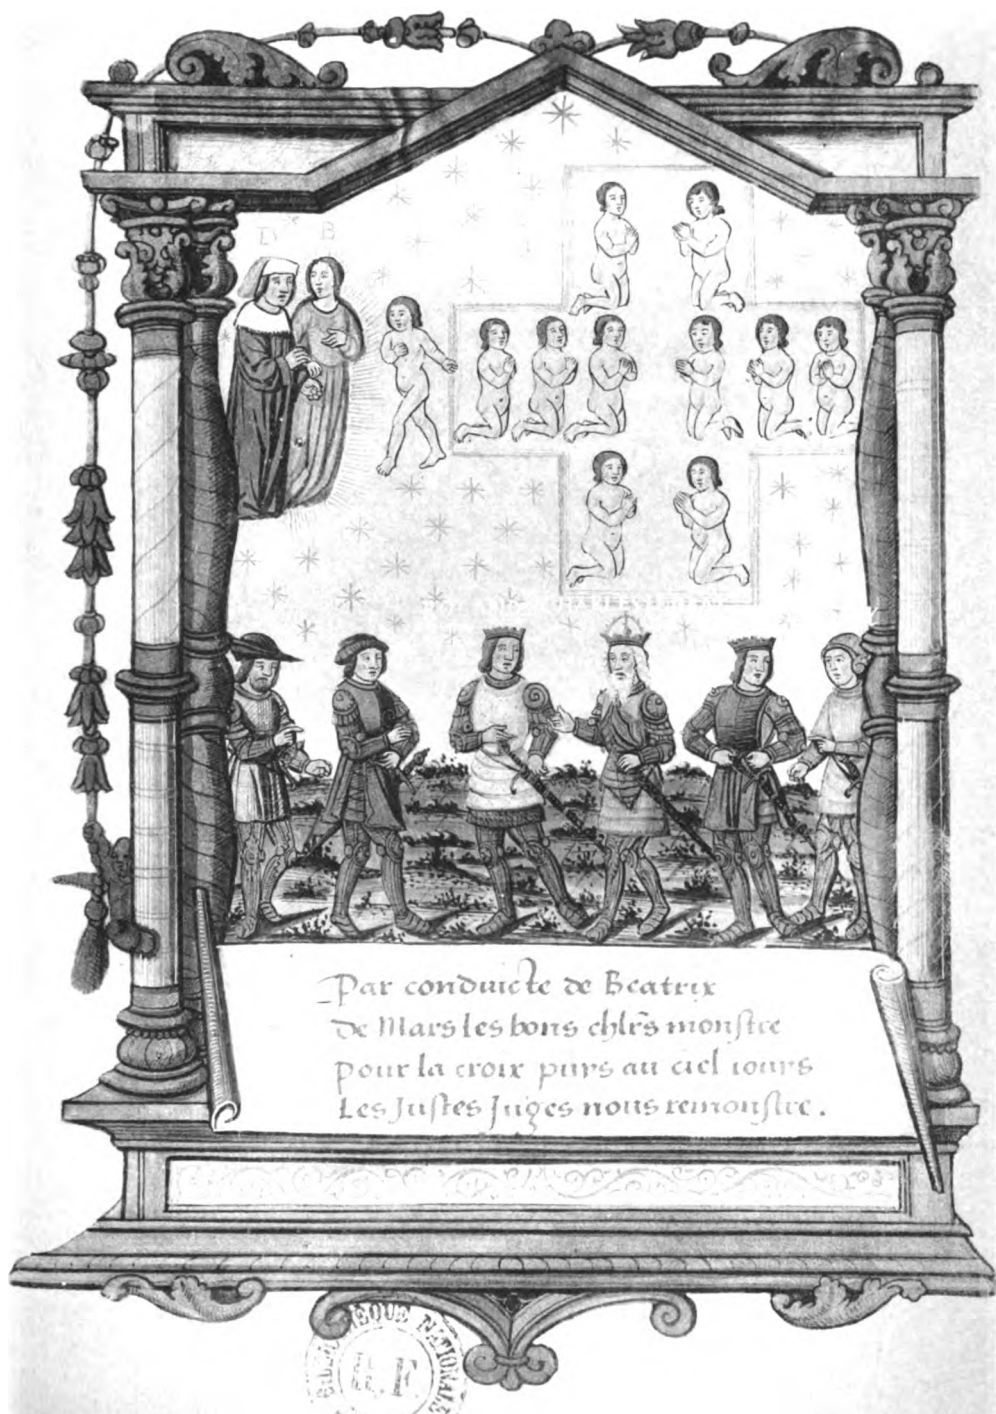 D B
Par conduicte de Beatrix
De Mars les bons chlr̃s monstre
pour la croix purs au ciel iours
Les Justes Juges nous remonstre.
NATIONALE